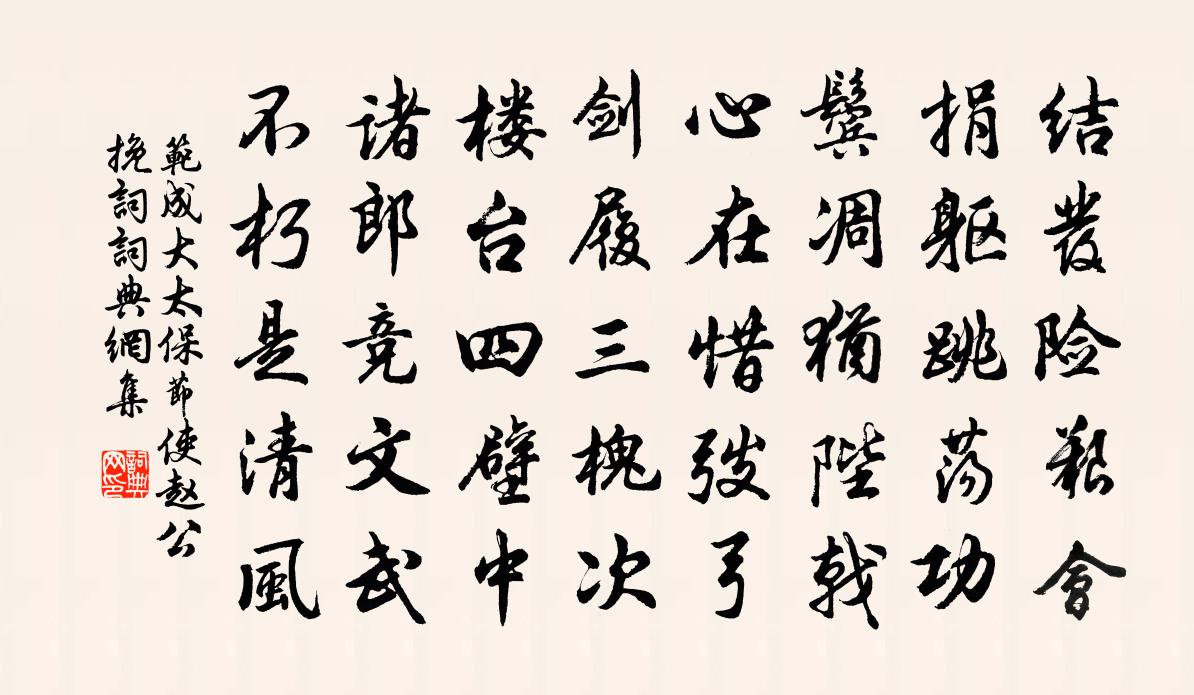 结發险艱會
捐躯跳荡功
鬓凋犹陛戟
心在惜弢弓
剑履三槐次
楼台四壁中
诸郎竞文武
不朽是清風
範成大太保節使赵公
挽詞詞典網集
詞典网印